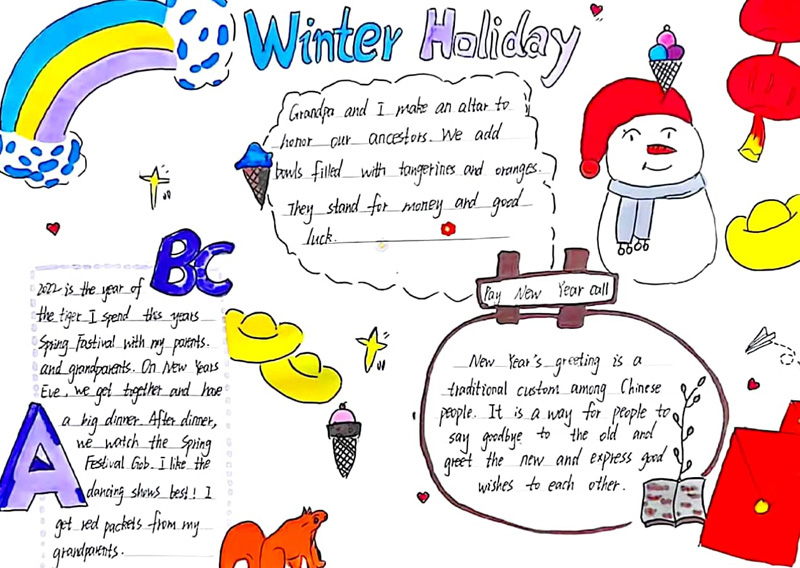 Winter Holiday
Grandpa and I make an altar to
honor our ancestors. We add
bowls filled with tangerines and oranges.
They stand for money and good
luck.
BC
2022 is the year of
the tiger I spend this years
Spring Fastival with my parents.
and grandparents. On New Years
Eve, we get together and have
a big dinner. After dinner,
we watch the Spring
Festival Gob. I like the
dancing shows best! I
get red packets from my
grandparents.
A
Pay New Year call
New Year's greeting is a
traditional custom among Chinese
people. It is a way for people to
say goodbye to the old and
greet the new and express good
wishes to each other.